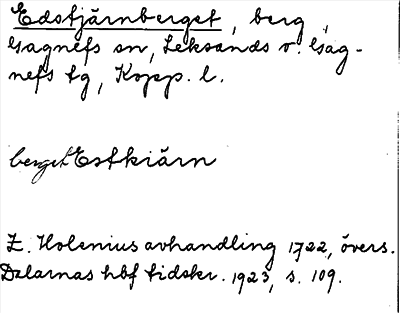 Edstjärnberget, berg,
Gagnefs sn, Leksands o. Gag-
nefs tg, Kopp. l.
berget Estkiärn
Z. Holenius avhandling 1722, övers.
Dalarnas hbf tidskr. 1923, s. 109.